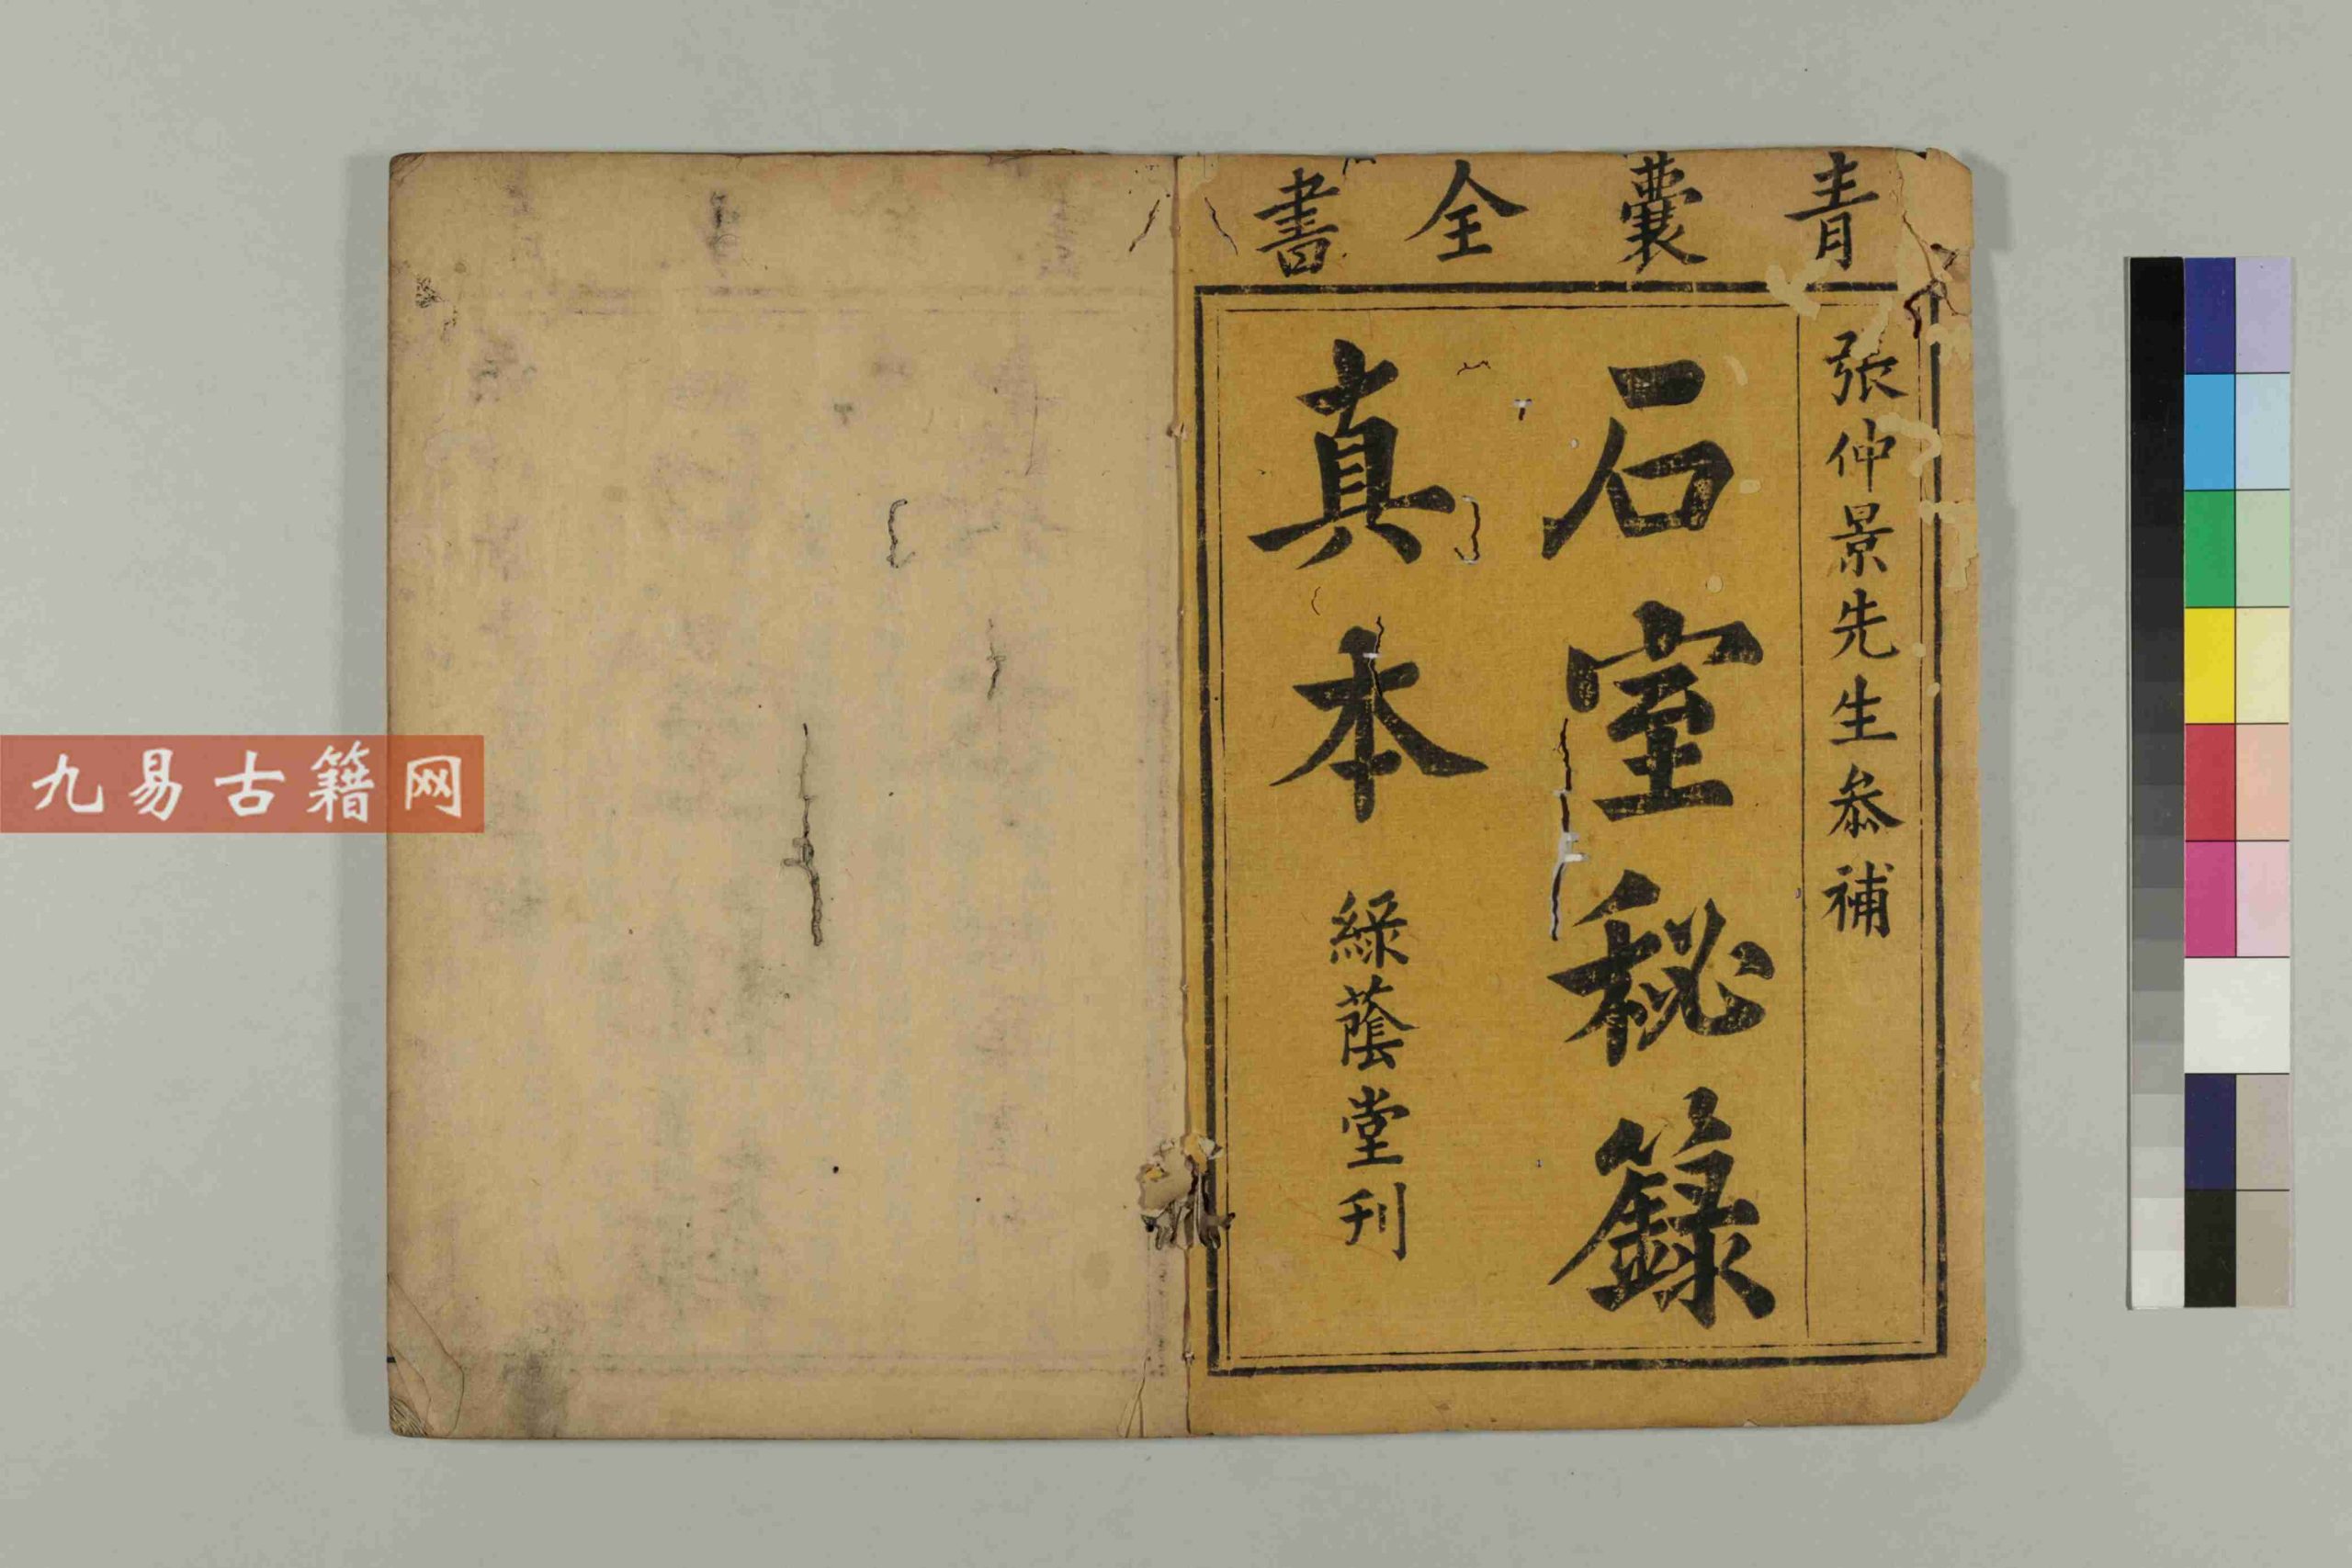 青囊全書
張仲景先生叅補
石室秘籙
真本
綠蔭堂刊
九易古籍网